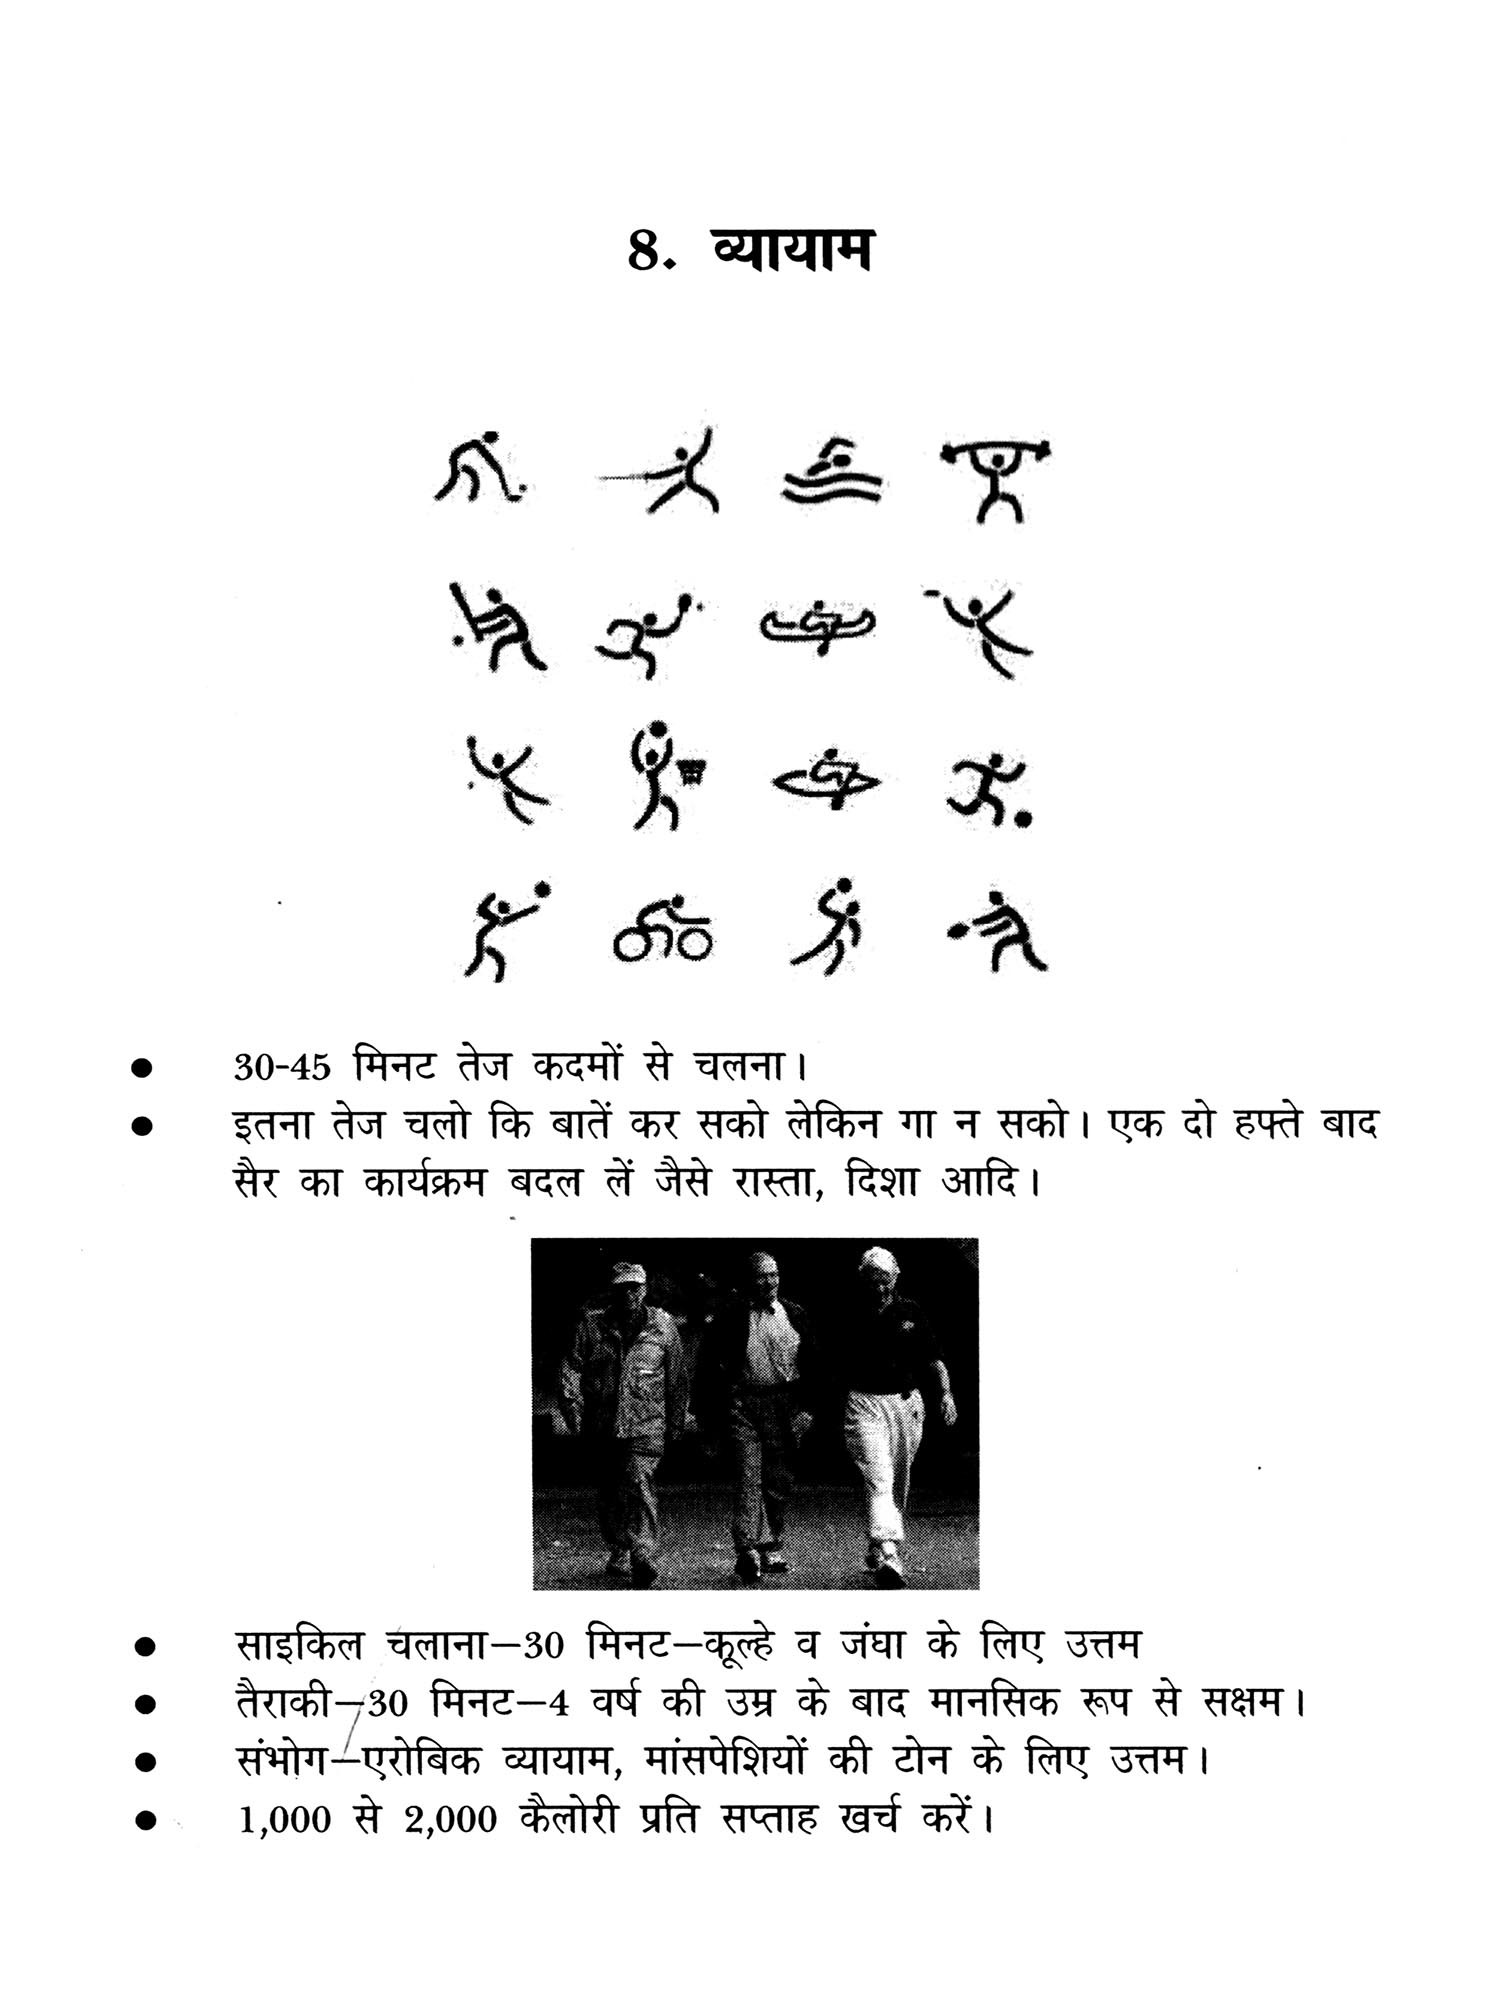 8. व्यायाम
● 30-45 मिनट तेज कदमों से चलना।
● इतना तेज चलो कि बातें कर सको लेकिन गा न सको। एक दो हफ्ते बाद
सैर का कार्यक्रम बदल लें जैसे रास्ता, दिशा आदि।
● साइकिल चलाना–30 मिनट–कूल्हे व जंघा के लिए उत्तम
● तैराकी–30 मिनट–4 वर्ष की उम्र के बाद मानसिक रूप से सक्षम।
● संभोग–एरोबिक व्यायाम, मांसपेशियों की टोन के लिए उत्तम।
● 1,000 से 2,000 कैलोरी प्रति सप्ताह खर्च करें।